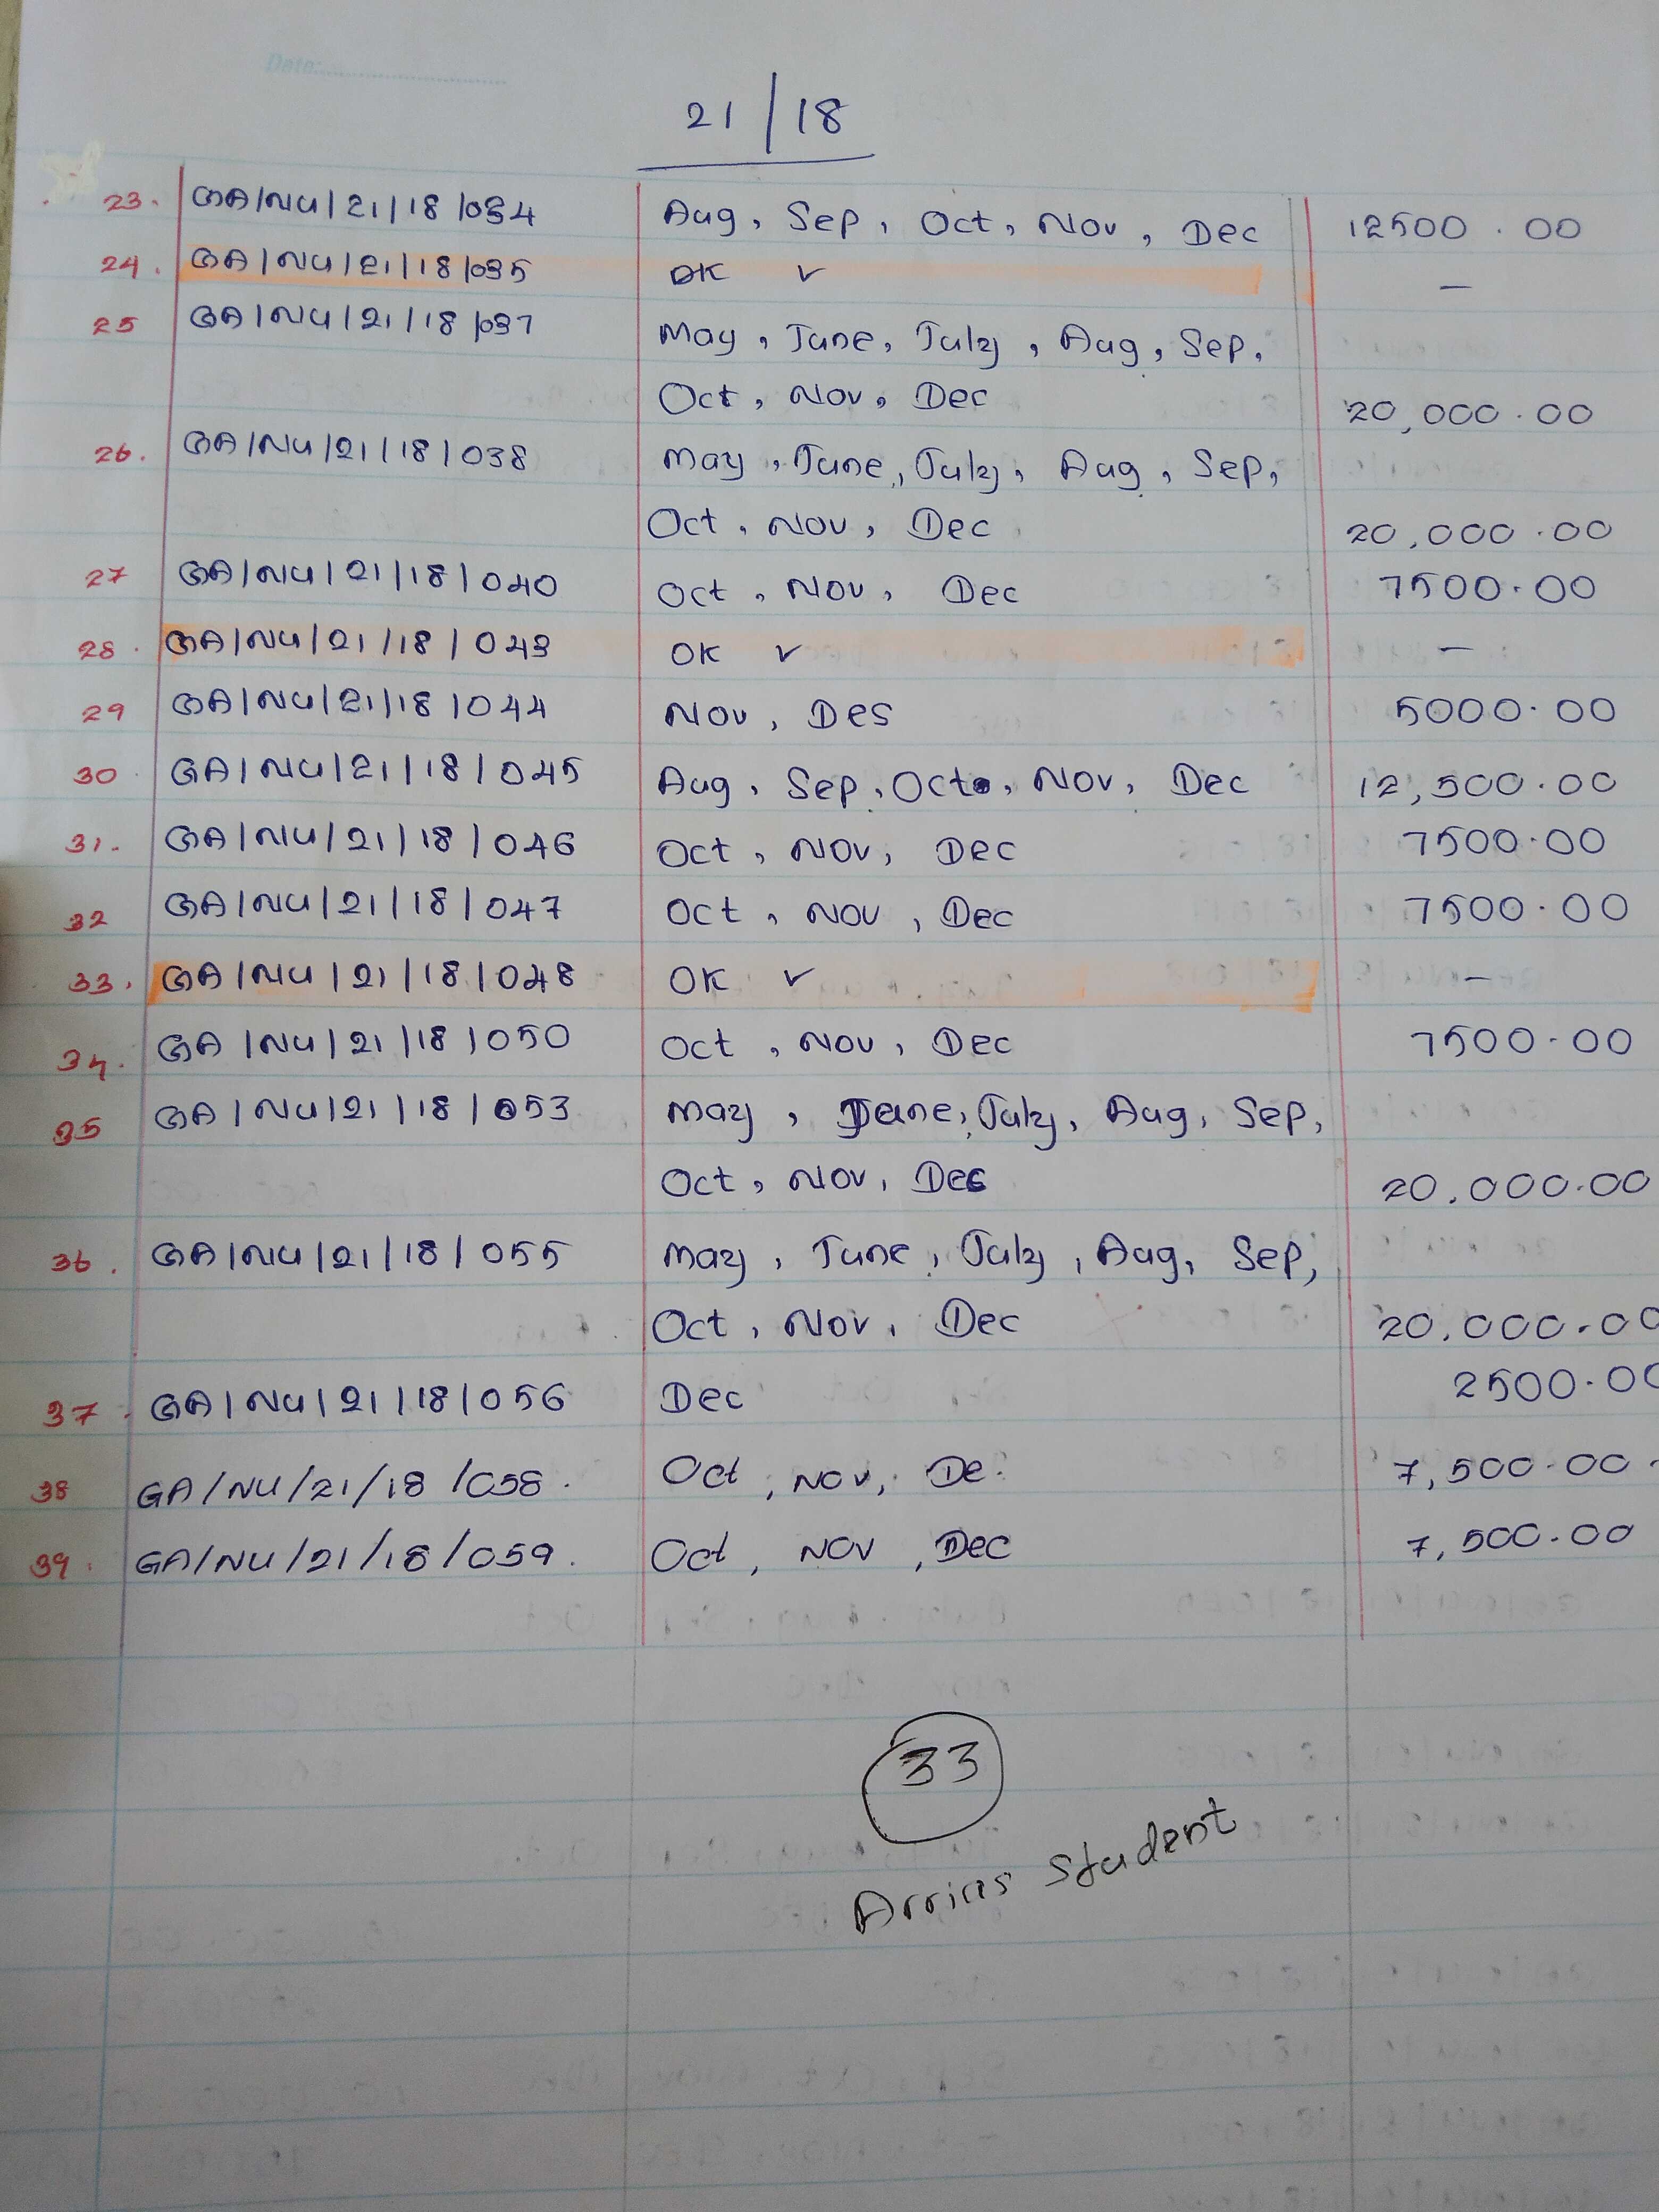 Date:
21/18
23. GA/NU/21/18/034 Aug, Sep, Oct, Nov, Dec 12500.00
24. GA/NU/21/18/035 OK ✓ —
25 GA/NU/21/18/037 May, June, July, Aug, Sep,
Oct, Nov, Dec 20,000.00
26. GA/NU/21/18/038 May, June, July, Aug, Sep,
Oct, Nov, Dec 20,000.00
27 GA/NU/21/18/040 Oct, Nov, Dec 7500.00
28. GA/NU/21/18/043 OK ✓ —
29 GA/NU/21/18/044 Nov, Des 5000.00
30 GA/NU/21/18/045 Aug, Sep, Oct, Nov, Dec 12,500.00
31. GA/NU/21/18/046 Oct, Nov, Dec 7500.00
32 GA/NU/21/18/047 Oct, Nov, Dec 7500.00
33. GA/NU/21/18/048 OK ✓ —
34. GA/NU/21/18/050 Oct, Nov, Dec 7500.00
35 GA/NU/21/18/053 May, June, July, Aug, Sep,
Oct, Nov, Dec 20,000.00
36. GA/NU/21/18/055 May, June, July, Aug, Sep,
Oct, Nov, Dec 20,000.00
37. GA/NU/21/18/056 Dec 2500.00
38 GA/NU/21/18/058. Oct, Nov, De. 7,500.00
39. GA/NU/21/18/059. Oct, Nov, Dec 7,500.00
33
Student